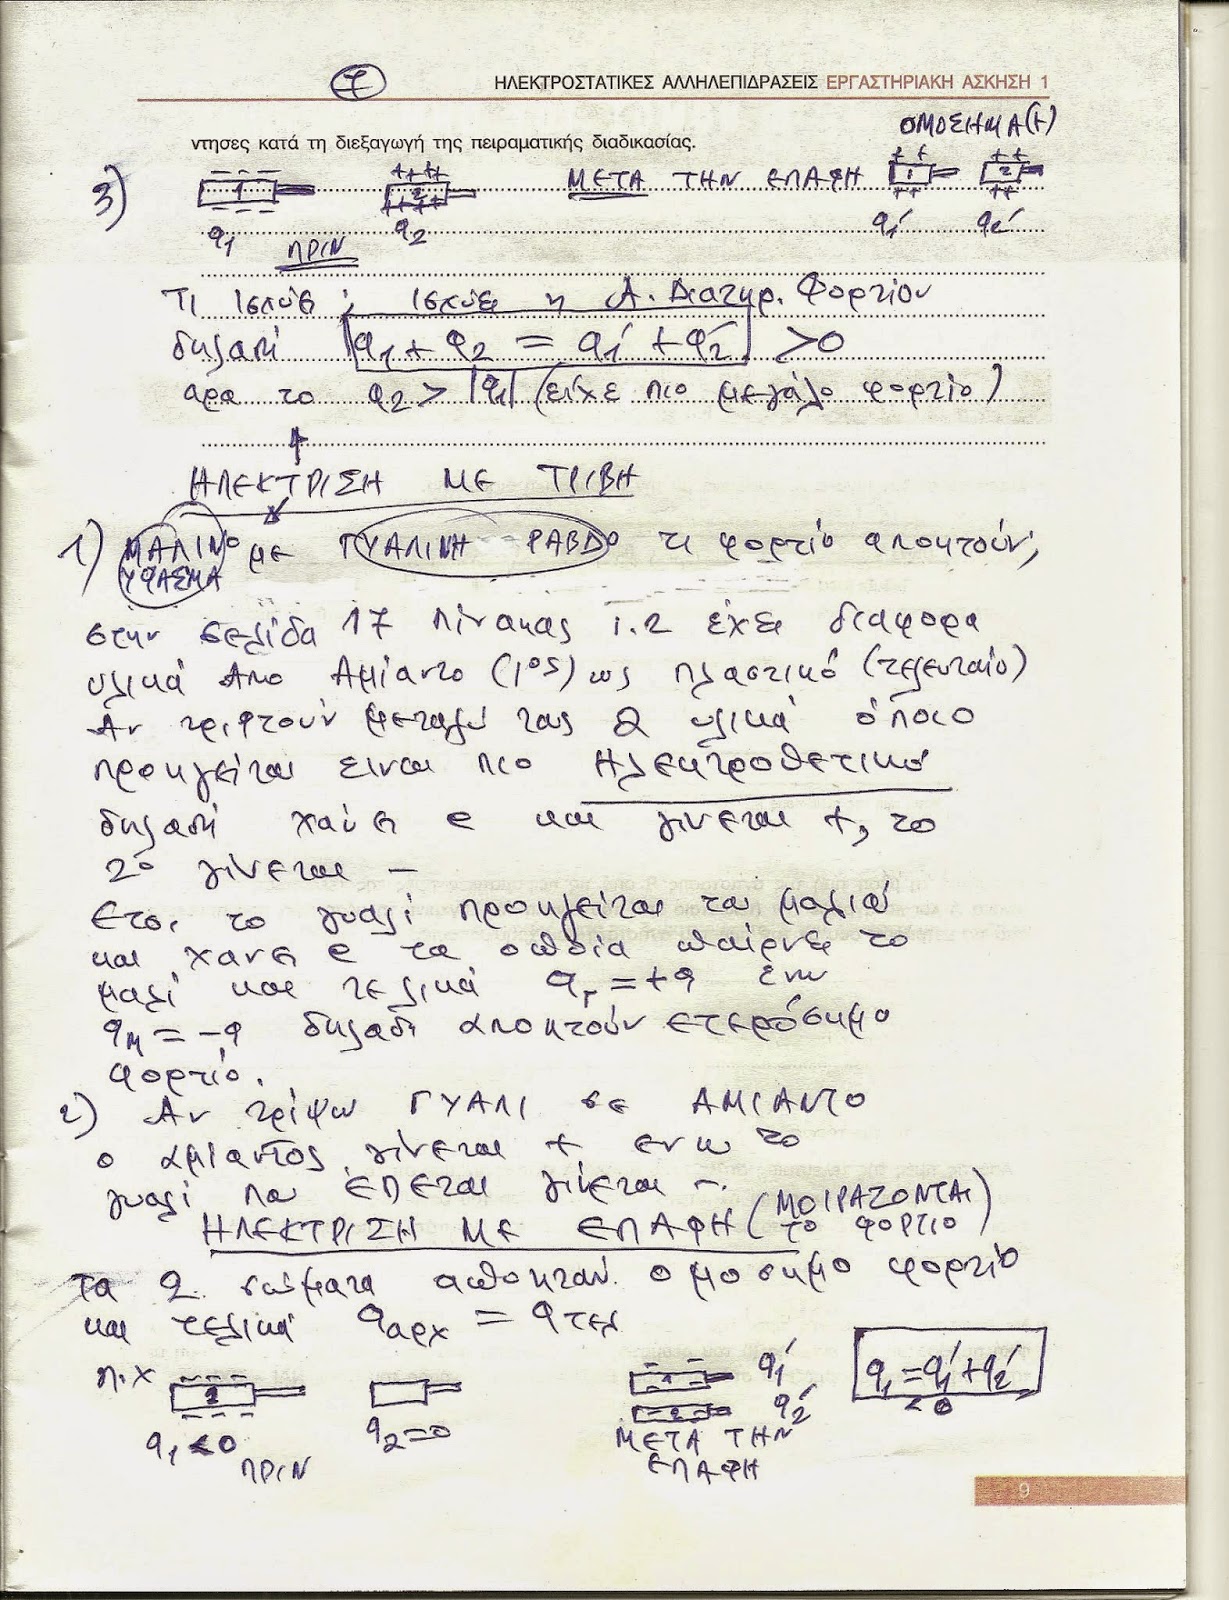 7 ΗΛΕΚΤΡΟΣΤΑΤΙΚΕΣ ΑΛΛΗΛΕΠΙΔΡΑΣΕΙΣ ΕΡΓΑΣΤΗΡΙΑΚΗ ΑΣΚΗΣΗ 1
ΟΜΟΣΗΜΑ (+)
ντησες κατά τη διεξαγωγή της πειραματικής διαδικασίας.
3) 1 2 ΜΕΤΑ ΤΗΝ ΕΠΑΦΗ 1 2
q1 q2 q1' q2'
ΠΡΙΝ
Τι ισχύει ; ισχύει η Α. Διατηρ. Φορτίου
δηλαδή q1 + q2 = q1' + q2' >0
αρα το q2 > |q1| (είχε πιο μεγάλο φορτίο)
ΗΛΕΚΤΡΙΣΗ ΜΕ ΤΡΙΒΗ
1) ΜΑΛΙΝΟ ΥΦΑΣΜΑ με ΓΥΑΛΙΝΗ ΡΑΒΔΟ τι φορτίο αποκτούν;
στην σελίδα 17 πίνακας 1.2 έχει διαφορα
υλικά Απο Αμίαντο (1ος) ως πλαστικό (τελευταίο)
Αν τριφτούν μεταξύ τους 2 υλικά όποιο
προηγείται ειναι πιο Ηλεκτροθετικό
δηλαδή χάνει e και γίνεται +, το
2ο γίνεται −
Ετσι το γυαλί προηγείται του μαλιού
και χανει e τα οποία παίρνει το
μαλί και τελικά qγ = +q ενω
qμ = −q δηλαδή αποκτούν ετερόσημο
φορτίο.
2) Αν τρίψω ΓΥΑΛΙ σε ΑΜΙΑΝΤΟ
ο αμίαντος γίνεται + ενω το
γυαλί που έπεται γίνεται −.
ΗΛΕΚΤΡΙΣΗ ΜΕ ΕΠΑΦΗ (ΜΟΙΡΑΖΟΝΤΑΙ ΤΟ ΦΟΡΤΙΟ)
τα 2 σώματα αποκτούν ομοσημο φορτίο
και τελικά qαρχ = qτελ
π.χ 1 q1' q1 = q1' + q2'
2 q2' < 0
q1 < 0 q2 = 0 ΜΕΤΑ ΤΗΝ
ΠΡΙΝ ΕΠΑΦΗ
9